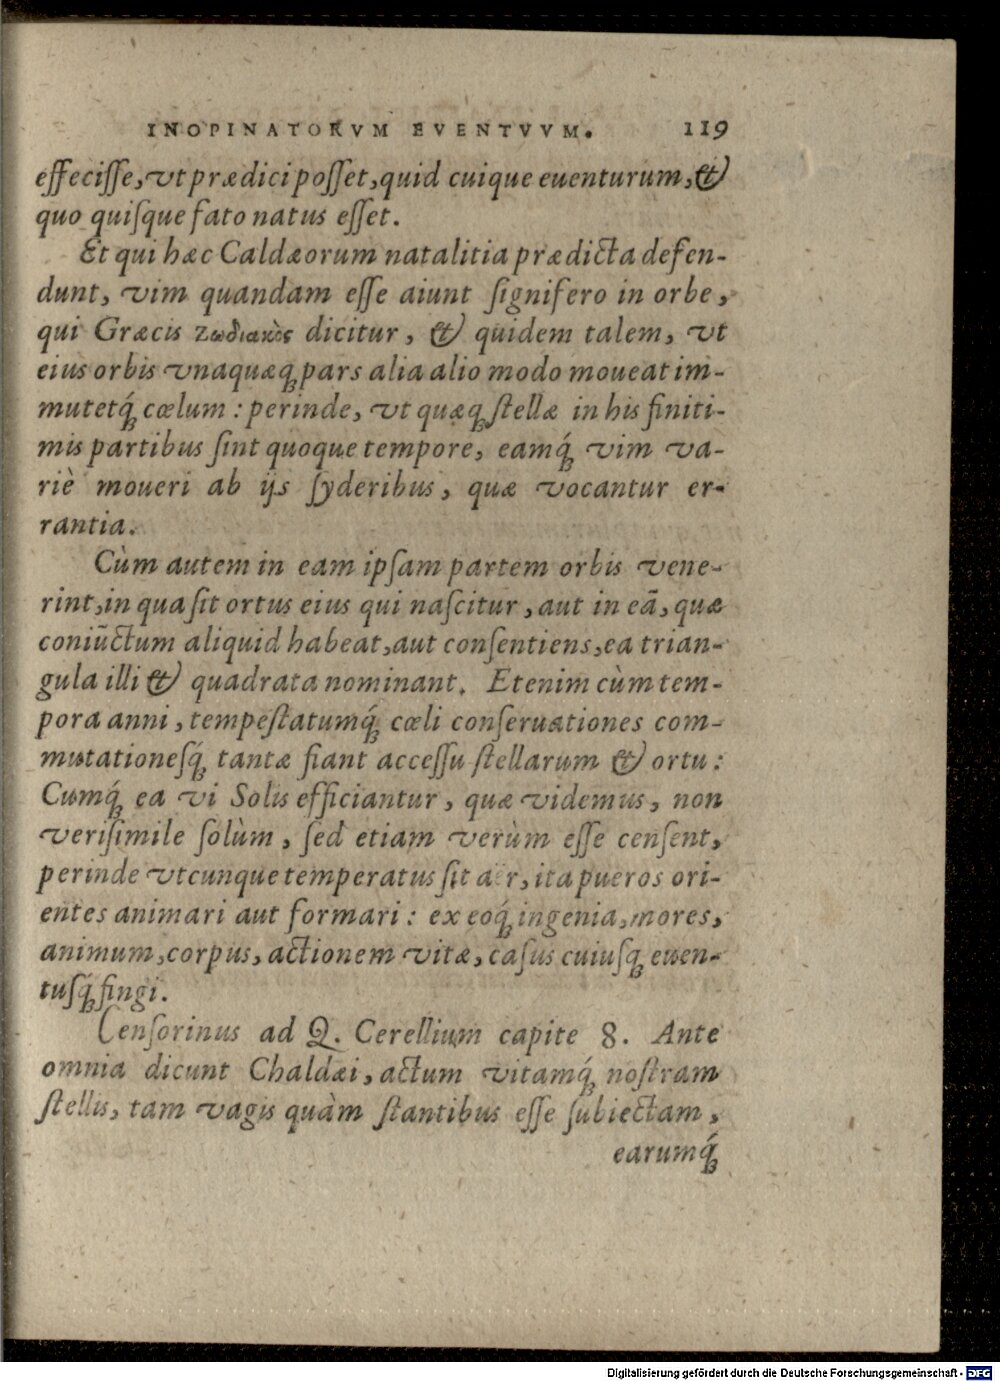 INOPINATORVM EVENTVVM. 119
effeciſſe, vt prædici poſſet, quid cuique euenturum, &
quo quiſque fato natus eſſet.
Et qui hæc Caldæorum natalitia prædicta defen-
dunt, vim quandam eſſe aiunt ſignifero in orbe,
qui Græcis ζωδιακὸς dicitur, & quidem talem, vt
eius orbis vnaquæq́; pars alia alio modo moueat im-
mutetq́; cœlum: perinde, vt quæq; ſtellæ in his finiti-
mis partibus ſint quoque tempore, eamq́; vim va-
riè moueri ab ijs ſyderibus, quæ vocantur er-
rantia.
Cùm autem in eam ipſam partem orbis vene-
rint, in qua ſit ortus eius qui naſcitur, aut in eã, quæ
coniũctum aliquid habeat, aut conſentiens, ea trian-
gula illi & quadrata nominant. Etenim cùm tem-
pora anni, tempeſtatumq́; cœli conſeruationes com-
mutationeſq́; tantæ fiant acceſſu ſtellarum & ortu:
Cumq́; ea vi Solis efficiantur, quæ videmus, non
veriſimile ſolùm, ſed etiam verùm eſſe cenſent,
perinde vtcunque temperatus ſit aër, ita pueros ori-
entes animari aut formari: ex eoq́; ingenia, mores,
animum, corpus, actionem vitæ, caſus cuiuſq; euen-
tuſq́; fingi.
Cenſorinus ad Q. Cerellium capite 8. Ante
omnia dicunt Chaldæi, actum vitamq́; noſtram
ſtellis, tam vagis quàm ſtantibus eſſe ſubiectam,
earumq́;
Digitalisierung gefördert durch die Deutsche Forschungsgemeinschaft - DFG